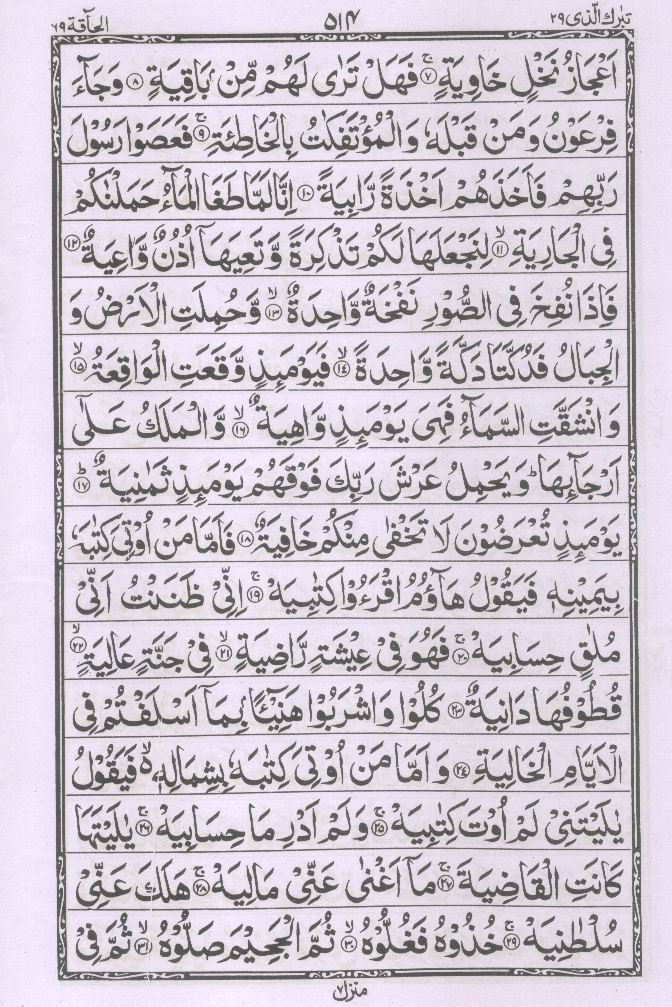 تبٰرك الّذی ٢٩ ٥١٤ الحآقة ٦٩
اَعْجَازُ نَخْلٍ خَاوِيَةٍ ۚ﴿٧﴾ فَهَلْ تَرٰى لَهُمْ مِّنْ بَاقِيَةٍ ﴿٨﴾ وَجَآءَ
فِرْعَوْنُ وَمَنْ قَبْلَهٗ وَالْمُؤْتَفِكٰتُ بِالْخَاطِئَةِ ۚ﴿٩﴾ فَعَصَوْا رَسُوْلَ
رَبِّهِمْ فَاَخَذَهُمْ اَخْذَةً رَّابِيَةً ﴿١٠﴾ اِنَّا لَمَّا طَغَا الْمَآءُ حَمَلْنٰكُمْ
فِى الْجَارِيَةِ ۙ﴿١١﴾ لِنَجْعَلَهَا لَكُمْ تَذْكِرَةً وَّتَعِيَهَآ اُذُنٌ وَّاعِيَةٌ ﴿١٢﴾
فَاِذَا نُفِخَ فِى الصُّوْرِ نَفْخَةٌ وَّاحِدَةٌ ۙ﴿١٣﴾ وَّحُمِلَتِ الْاَرْضُ وَ
الْجِبَالُ فَدُكَّتَا دَكَّةً وَّاحِدَةً ۙ﴿١٤﴾ فَيَوْمَئِذٍ وَّقَعَتِ الْوَاقِعَةُ ۙ﴿١٥﴾
وَانْشَقَّتِ السَّمَآءُ فَهِىَ يَوْمَئِذٍ وَّاهِيَةٌ ۙ﴿١٦﴾ وَّالْمَلَكُ عَلٰٓى
اَرْجَآئِهَا ؕ وَيَحْمِلُ عَرْشَ رَبِّكَ فَوْقَهُمْ يَوْمَئِذٍ ثَمٰنِيَةٌ ؕ﴿١٧﴾
يَوْمَئِذٍ تُعْرَضُوْنَ لَا تَخْفٰى مِنْكُمْ خَافِيَةٌ ﴿١٨﴾ فَاَمَّا مَنْ اُوْتِىَ كِتٰبَهٗ
بِيَمِيْنِهٖ فَيَقُوْلُ هَآؤُمُ اقْرَءُوْا كِتٰبِيَهْ ۚ﴿١٩﴾ اِنِّىْ ظَنَنْتُ اَنِّىْ
مُلٰقٍ حِسَابِيَهْ ۚ﴿٢٠﴾ فَهُوَ فِىْ عِيْشَةٍ رَّاضِيَةٍ ۙ﴿٢١﴾ فِىْ جَنَّةٍ عَالِيَةٍ ۙ﴿٢٢﴾
قُطُوْفُهَا دَانِيَةٌ ﴿٢٣﴾ كُلُوْا وَاشْرَبُوْا هَنِيْٓـًٔا بِمَآ اَسْلَفْتُمْ فِى
الْاَيَّامِ الْخَالِيَةِ ﴿٢٤﴾ وَاَمَّا مَنْ اُوْتِىَ كِتٰبَهٗ بِشِمَالِهٖ ۙ۬ فَيَقُوْلُ
يٰلَيْتَنِىْ لَمْ اُوْتَ كِتٰبِيَهْ ۚ﴿٢٥﴾ وَلَمْ اَدْرِ مَا حِسَابِيَهْ ۚ﴿٢٦﴾ يٰلَيْتَهَا
كَانَتِ الْقَاضِيَةَ ۚ﴿٢٧﴾ مَآ اَغْنٰى عَنِّىْ مَالِيَهْ ۚ﴿٢٨﴾ هَلَكَ عَنِّىْ
سُلْطٰنِيَهْ ۚ﴿٢٩﴾ خُذُوْهُ فَغُلُّوْهُ ۙ﴿٣٠﴾ ثُمَّ الْجَحِيْمَ صَلُّوْهُ ۙ﴿٣١﴾ ثُمَّ فِىْ
منزل ٧